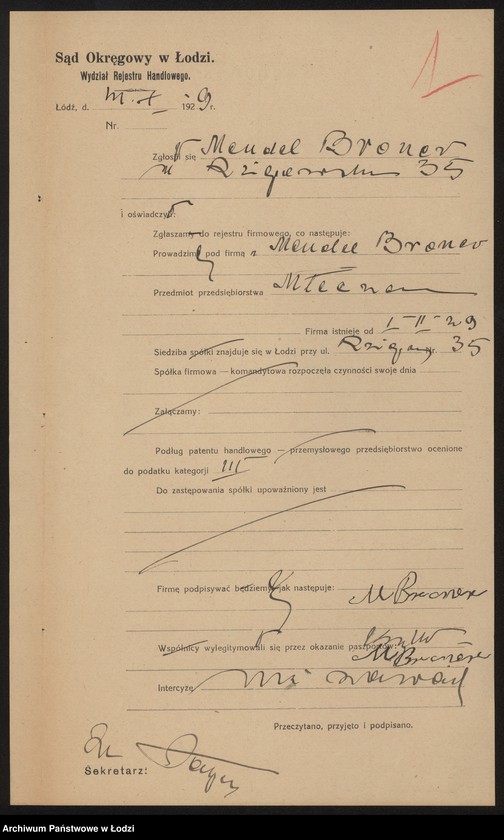 1
Sąd Okręgowy w Łodzi.
Wydział Rejestru Handlowego.
Łódź, d. 1929 r.
Nr.
Zgłosił się Mendel Broner
Rzgowska 35
i oświadczył:
Zgłaszamy do rejestru firmowego, co następuje:
Prowadzimy pod firmą „ Mendel Broner
Przedmiot przedsiębiorstwa Mleczna
Firma istnieje od 1-II-29
Siedziba spółki znajduje się w Łodzi przy ul. Rzgowska 35
Spółka firmowa — komandytowa rozpoczęła czynności swoje dnia
Załączamy:
Podług patentu handlowego — przemysłowego przedsiębiorstwo ocenione
do podatku kategorji III
Do zastępowania spółki upoważniony jest
Firmę podpisywać będziemy jak następuje:
M Broner
Wspólnicy wylegitymowali się przez okazanie paszportów:
M Broner
Intercyzę nie zawarł
Przeczytano, przyjęto i podpisano.
Sekretarz:
Archiwum Państwowe w Łodzi